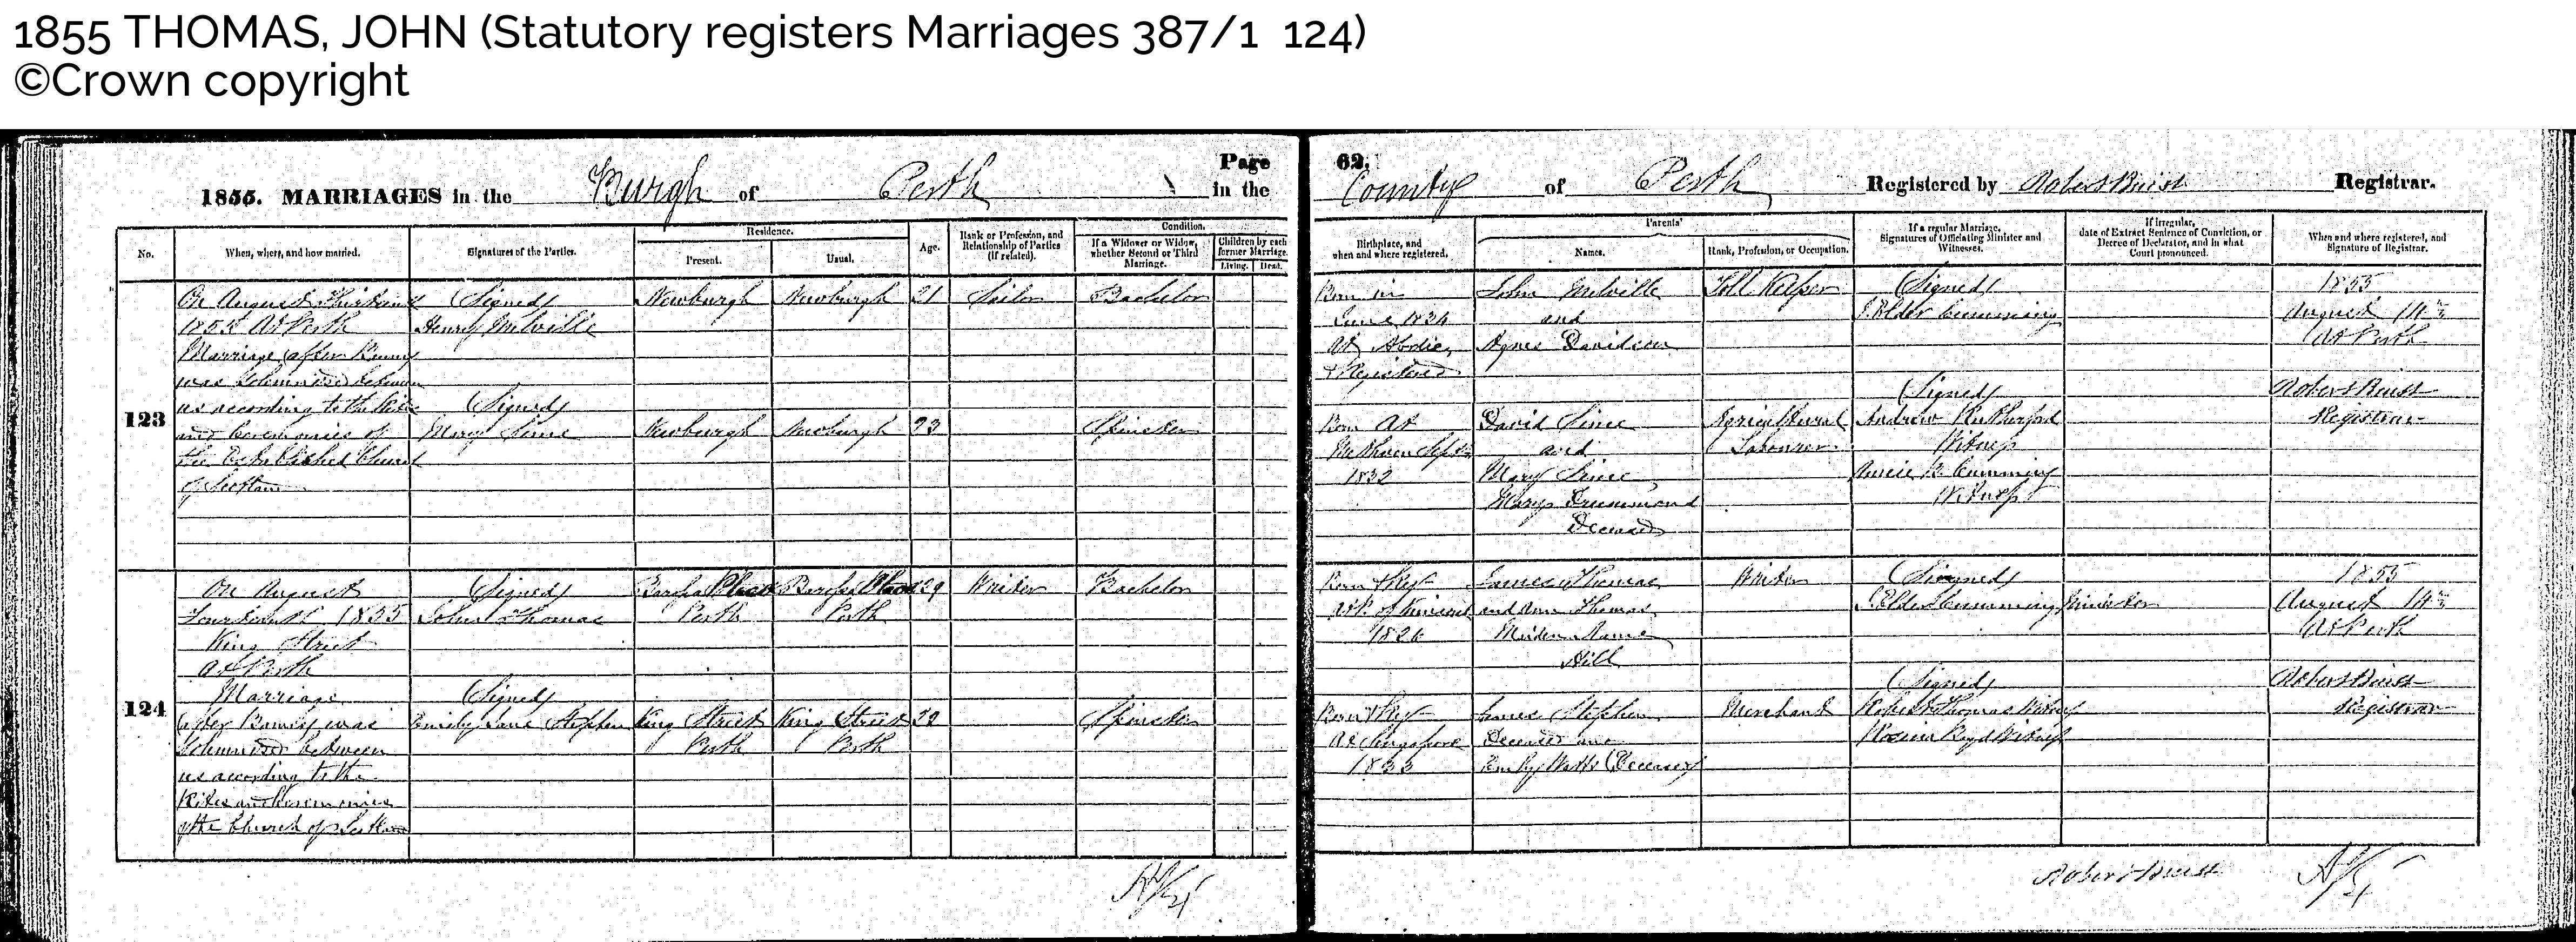 1855 THOMAS, JOHN (Statutory registers Marriages 387/1 124)
©Crown copyright
Page 62.
1855. MARRIAGES in the Burgh of Perth in the County of Perth Registered by Robert Buist Registrar.
No.
When, where, and how married.
Signatures of the Parties.
Residence.
Present.
Usual.
Age.
Rank or Profession, and
Relationship of Parties
(if related).
Condition.
If a Widower or Widow,
whether Second or Third
Marriage.
Children by each
former Marriage.
Living. Dead.
Birthplace, and
when and where registered.
Parents'
Names.
Rank, Profession, or Occupation.
If a regular Marriage,
Signatures of Officiating Minister and
Witnesses.
If irregular,
date of Extract Sentence of Conviction, or
Decree of Declarator, and in what
Court pronounced.
When and where registered, and
Signature of Registrar.
123
On August
1855 At Perth
Marriage after Banns
was Solemnized between
us according to the Rites
and Ceremonies of
the Established Church
of Scotland
(Signed)
Henry Melville
(Signed)
Mary Sime
Newburgh
Newburgh
Newburgh
Newburgh
21
23
Bachelor
Spinster
Born in
June 1834
At Abdie,
& Registered
Born At
Methven Sept
1832
John Melville
and
Agnes Davidson
David Sime
and
Mary Sime
Drummond
Deceased
Toll Keeper
Agricultural
Labourer
(Signed)
J. Elder Cumming
(Signed)
Andrew Rutherford
Witness
Cumming
Witness
1855
August 14th
At Perth
Robert Buist
Registrar
124
On August
Fourteenth 1855
King Street
at Perth
Marriage
after Banns was
Solemnized between
us according to the
Rites and Ceremonies
of the Church of Scotland
(Signed)
John Thomas
(Signed)
Emily Jane Stephen
Place
Perth
King Street
Perth
Place
Perth
King Street
Perth
29
22
Writer
Bachelor
Spinster
Born & Reg
1826
Born & Reg
At Singapore
1833
James Thomas
and Ann Thomas
Maiden Name
Hill
James Stephen
Deceased and
Emily Watts (Deceased)
Writer
Merchant
(Signed)
J. Elder Cumming Minister
(Signed)
Robert Thomas Witness
Boyd Witness
1855
August 14th
At Perth
Robert Buist
Registrar
Robert Buist